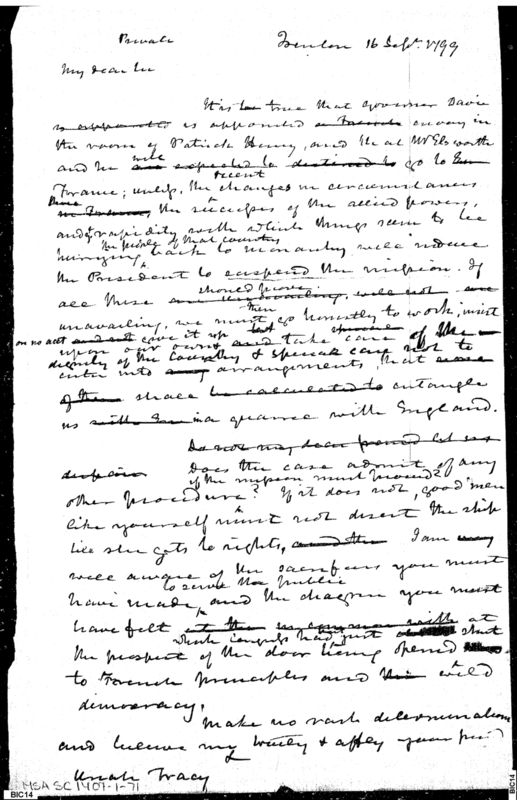 Private
Trenton 16 Sept. 1799
My dear
It is true that Governor Davie
is appointed envoy in
the room of Patrick Henry, and that Mr Elsworth
and he will expected to destined to go to
France; unless, the recent changes in circumstances
there the successes of the allied powers,
and ye rapidity with which things seem to be
the people of that country
hurrying back to monarchy will induce
the President to suspend the mission. If
all these should prove
unavailing, we must then go honestly to work, insist
on no act give it up but
upon our own and take care of the
dignity of the country & special care not to
enter into any arrangements, that
of them shall be calculated to entangle
us in a quarrel with England.
Do not my dear friend let us
despair Does the case admit of any
if the mission must proceed?
other procedure? If it does not, good men
like yourself must not desert the ship
till she gets to rights, and the I am
well aware of the sacrifices you must
to serve the public
have made, and the chagrin you must
have felt at
which Congress had just shut
the prospect of the door being opened
to French principles and wild
democracy.
Make no rash determinations
and believe my truly & affly your
Uriah Tracy
MSA SC 1407-1-71
BIC14
BIC14